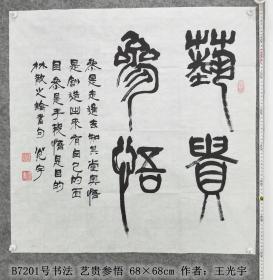 藝貴
參悟
參是走進去知其堂奧悟
是創造出來有自己的面
目參是手段悟是目的
林散之論書句 光宇
B7201号书法 艺贵参悟 68×68cm 作者：王光宇